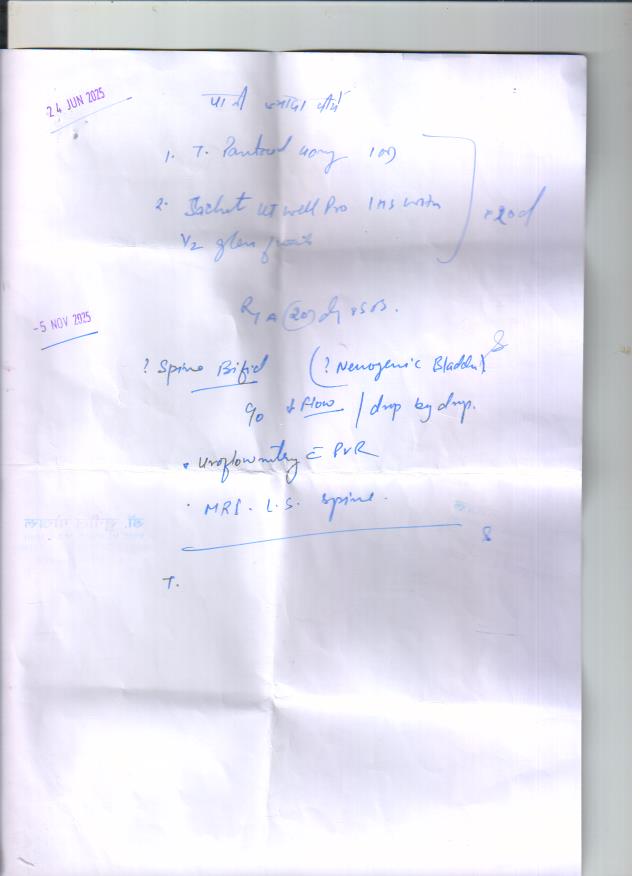 24 JUN 2025
पानी ज्यादा पीये
1. T. Pantocid 40mg 1 OD
2. Sachet UT well Pro 1 HS with
1/2 glass
x 20d
-5 NOV 2025
R/A 20 d
? Spina Bifid (? Neurogenic Bladder)
c/o ↓ Flow / drop by drop.
• Uroflowmetry c̄ PVR
• MRI. L.S. Spine.
T.